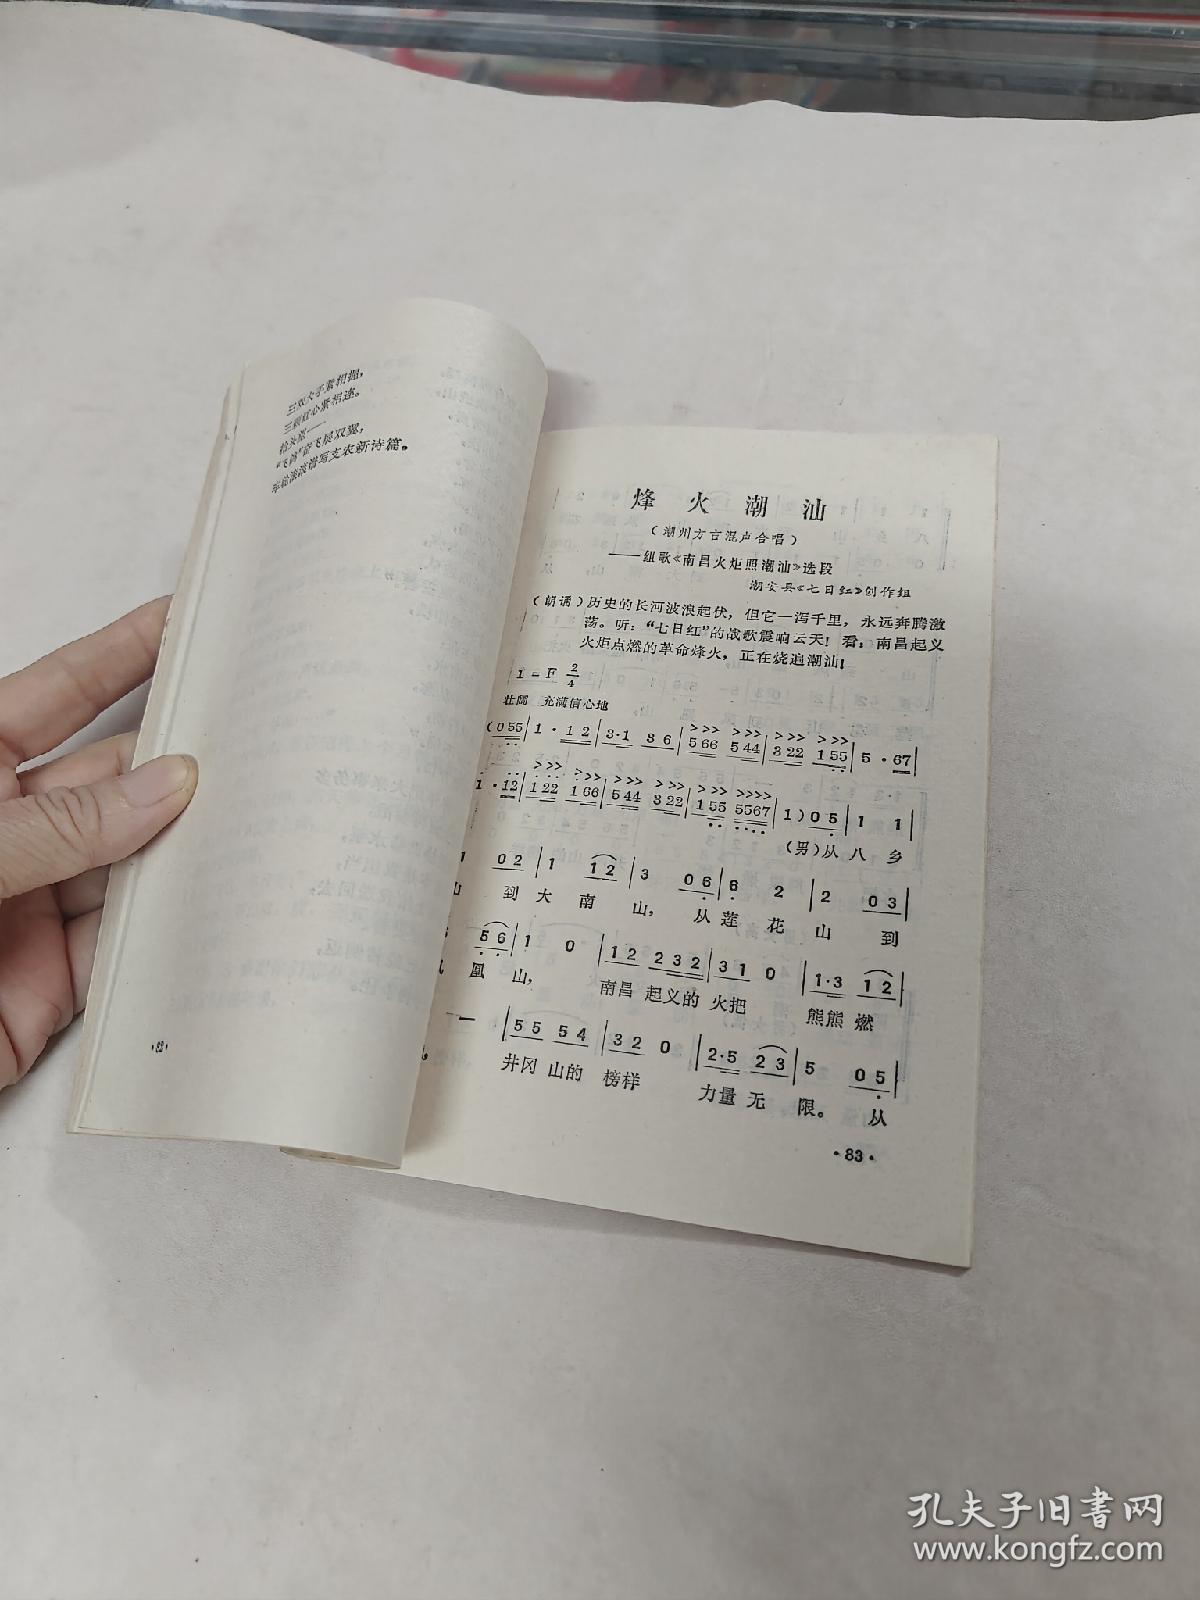 三双大手紧相握，
三颗红心紧相连。
抬头笑——
“飞鸽”奋飞展双翼，
车轮滚滚谱写支农新诗篇。
·82·
烽火潮汕
（潮州方言混声合唱）
——组歌《南昌火炬照潮汕》选段
潮安县《七日红》创作组
（朗诵）历史的长河波浪起伏，但它一泻千里，永远奔腾激
荡。听：“七日红”的战歌震响云天！看：南昌起义
火炬点燃的革命烽火，正在烧遍潮汕！
1=F 2/4
壮阔 充满信心地
(055 | 1· 12 | 3·1 36 | 566 544 | 322 155 | 5· 67 |
1· 12 | 122 166 | 544 322 | 155 5567 | 1) 05 | 1 1 |
（男）从 八 乡
02 | 1 12 | 3 06 | 6 2 | 2 03 |
到 大 南 山， 从 莲 花 山 到
56 | 1 0 | 12 232 | 31 0 | 1·3 12 |
凰 山， 南昌 起义的 火把 熊熊 燃
— | 55 54 | 32 0 | 2·5 23 | 5 05 |
井冈 山的 榜样 力量 无 限。 从
·83·
孔夫子旧书网
www.kongfz.com